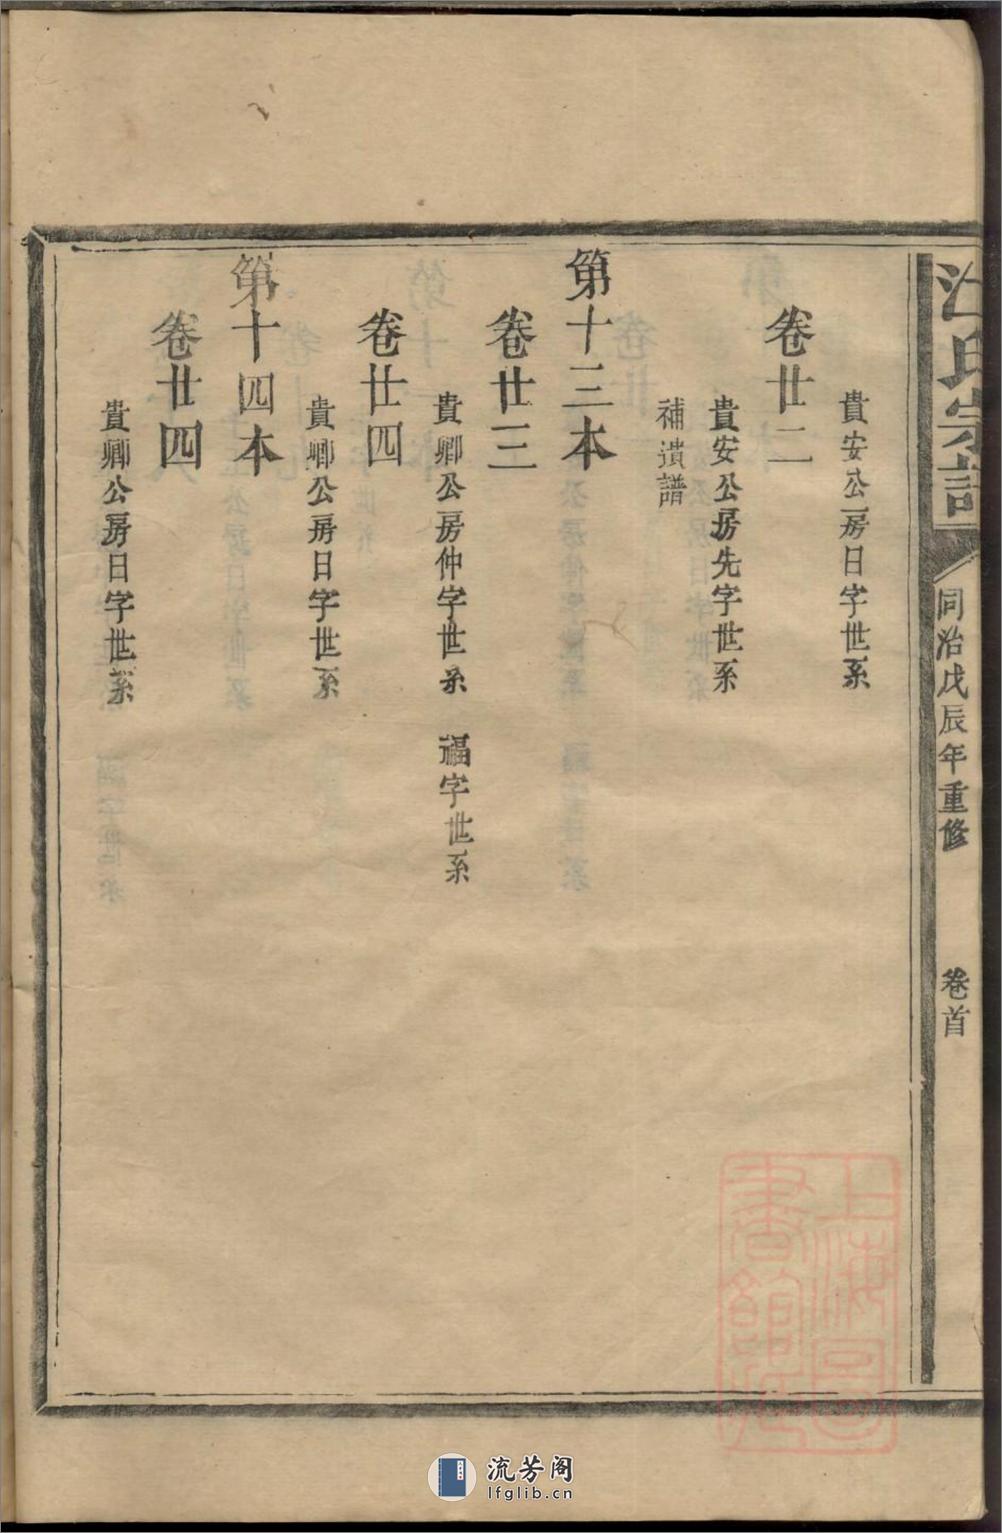 江氏宗譜
同治戊辰年重修
卷首
貴安公房日字世系
卷廿二
貴安公房先字世系
補遺譜
第十三本
卷廿三
貴卿公房仲字世系　福字世系
卷廿四
貴卿公房日字世系
第十四本
卷廿四
貴卿公房日字世系
上海圖
書館藏
流芳阁
lfglib.cn